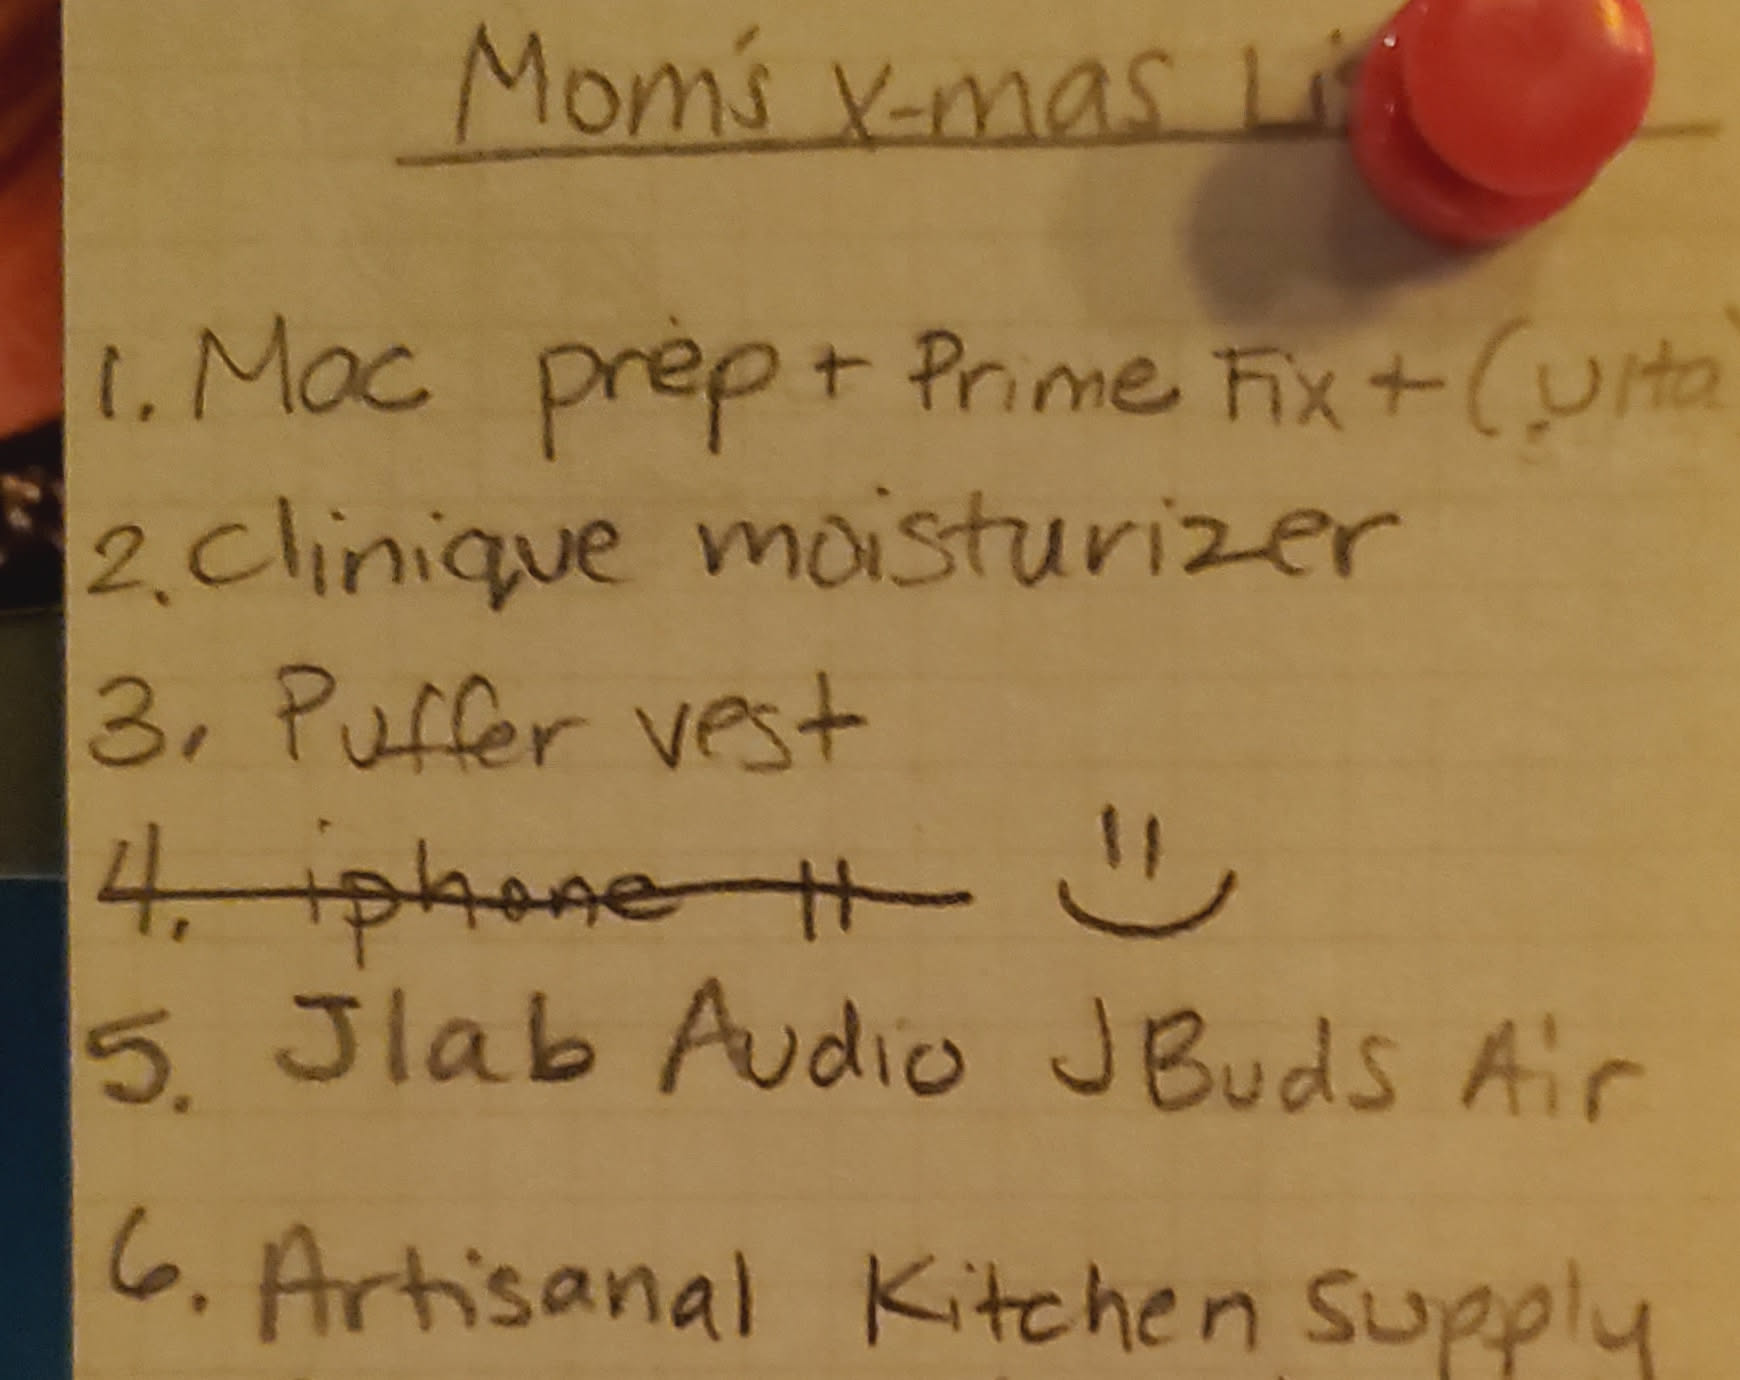 Mom's X-mas Li
1. Mac prep + Prime Fix + (Ulta)
2. Clinique moisturizer
3. Puffer vest
4. iphone 11
5. Jlab Audio JBuds Air
6. Artisanal Kitchen Supply